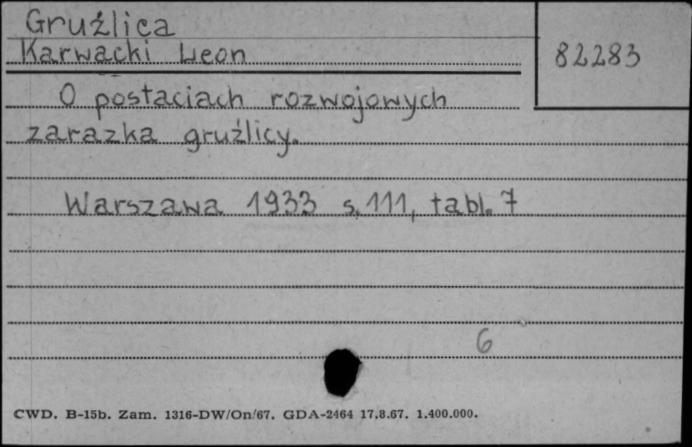 Gruźlica
Karwacki Leon
82283
O postaciach rozwojowych
zarazka gruźlicy.
Warszawa 1933 s. 111, tabl. 7
6
CWD. B-15b. Zam. 1316-DW/On/67. GDA-2464 17.8.67. 1.400.000.